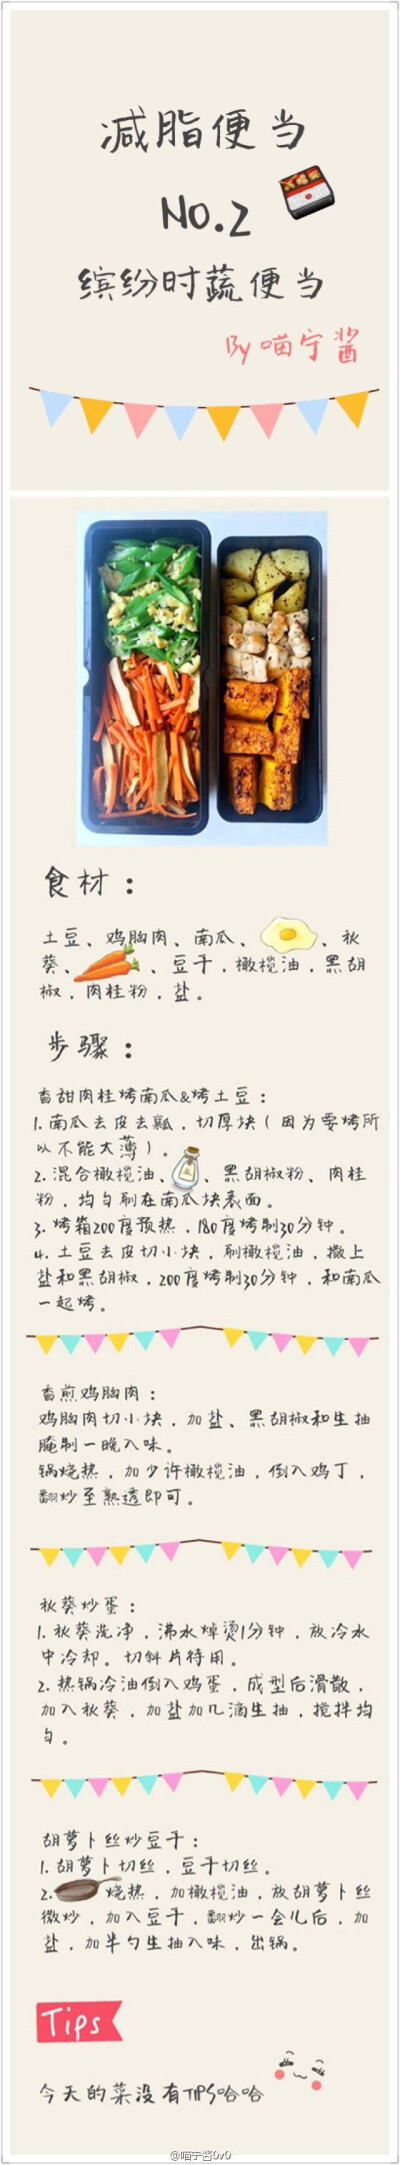 减脂便当
No.2
缤纷时蔬便当
By 喵宁酱
食材：
土豆、鸡胸肉、南瓜、、秋
葵、、豆干，橄榄油，黑胡
椒，肉桂粉，盐。
步骤：
香甜肉桂烤南瓜&烤土豆：
1. 南瓜去皮去瓤，切厚块（因为要烤所
以不能太薄）。
2. 混合橄榄油、、黑胡椒粉、肉桂
粉，均匀刷在南瓜块表面。
3. 烤箱200度预热，180度烤制30分钟。
4. 土豆去皮切小块，刷橄榄油，撒上
盐和黑胡椒，200度烤制30分钟，和南瓜
一起烤。
香煎鸡胸肉：
鸡胸肉切小块，加盐、黑胡椒和生抽
腌制一晚入味。
锅烧热，加少许橄榄油，倒入鸡丁，
翻炒至熟透即可。
秋葵炒蛋：
1. 秋葵洗净，沸水焯烫1分钟，放冷水
中冷却。切斜片待用。
2. 热锅冷油倒入鸡蛋，成型后滑散，
加入秋葵，加盐加几滴生抽，搅拌均
匀。
胡萝卜丝炒豆干：
1. 胡萝卜切丝，豆干切丝。
2. 烧热，加橄榄油，放胡萝卜丝
微炒，加入豆干，翻炒一会儿后，加
盐，加半勺生抽入味，出锅。
Tips
今天的菜没有TIPS哈哈
@喵宁酱0v0